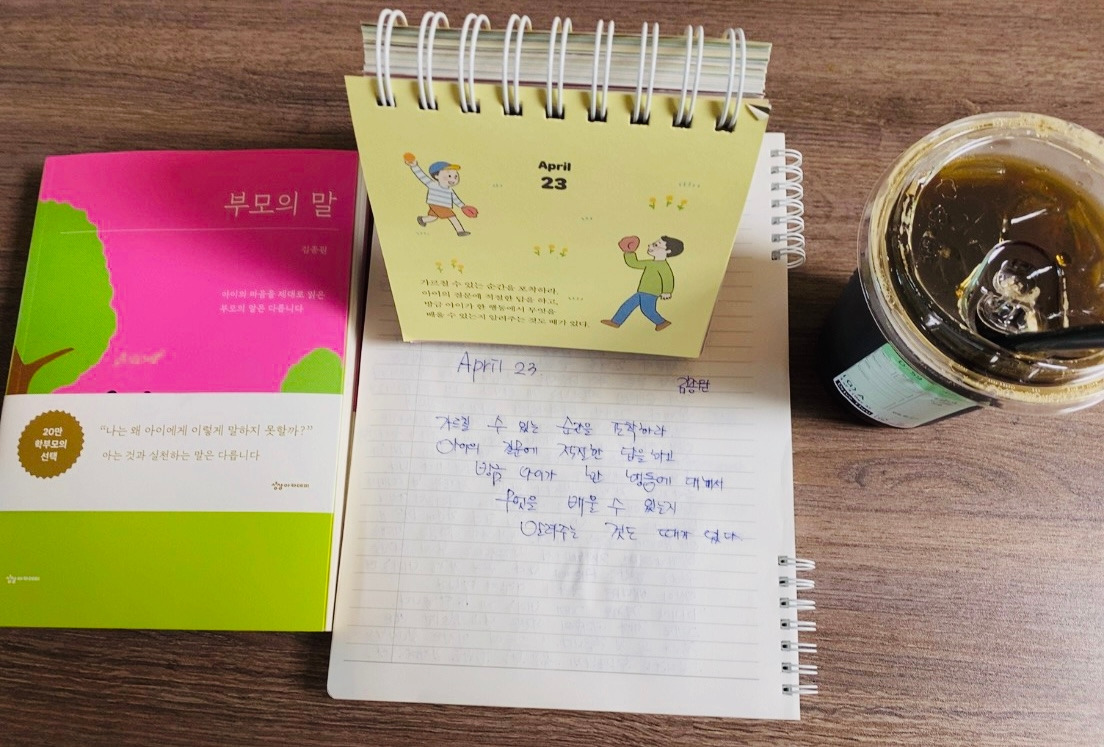 부모의 말
김종원
아이의 마음을 제대로 읽은
부모의 말은 다릅니다
20만
학부모의
선택
“나는 왜 아이에게 이렇게 말하지 못할까?”
아는 것과 실천하는 말은 다릅니다
상상아카데미
상상아카데미
April
23
가르칠 수 있는 순간을 포착하라.
아이의 질문에 적절한 답을 하고,
방금 아이가 한 행동에서 무엇을
배울 수 있는지 알려주는 것도 때가 있다.
April 23
김종원
가르칠 수 있는 순간을 포착하라
아이의 질문에 적절한 답을 하고
방금 아이가 한 행동에 대해서
무엇을 배울 수 있는지
알려주는 것도 때가 있다.